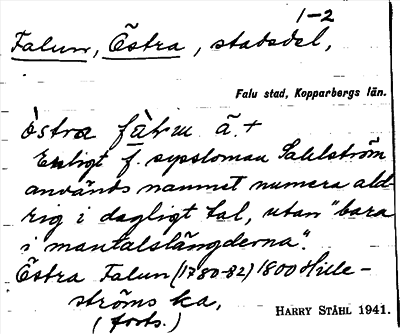 1-2
Falun, Östra, stadsdel,
Falu stad, Kopparbergs län.
òstra fàlun ä.+
Enligt f. syssloman Sahlström
används namnet numera ald-
rig i dagligt tal, utan "bara
i mantalslängderna".
Östra Falun (1780-82) 1800 Hille-
ströms ka,
(forts.)
HARRY STÅHL 1941.